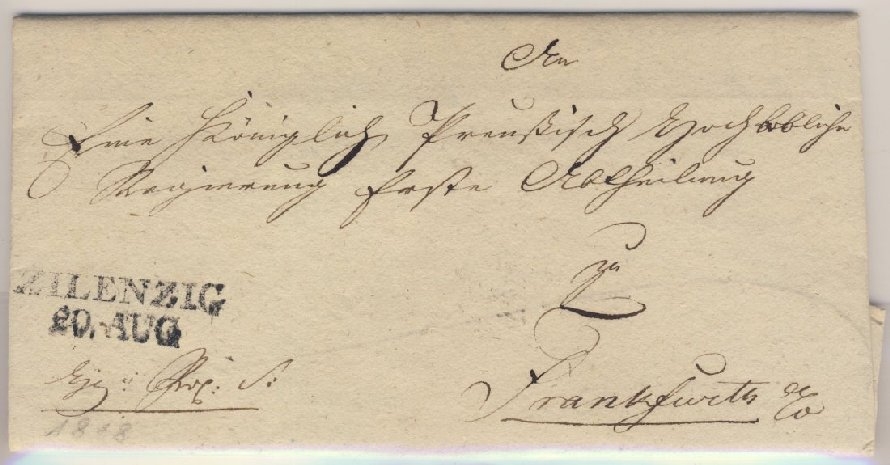 An
Eine Königlich Preußisch Hochlobliche
Regierung Erste Abtheilung
zu
Frankfurth
ZILENZIG
20. AUG
1818